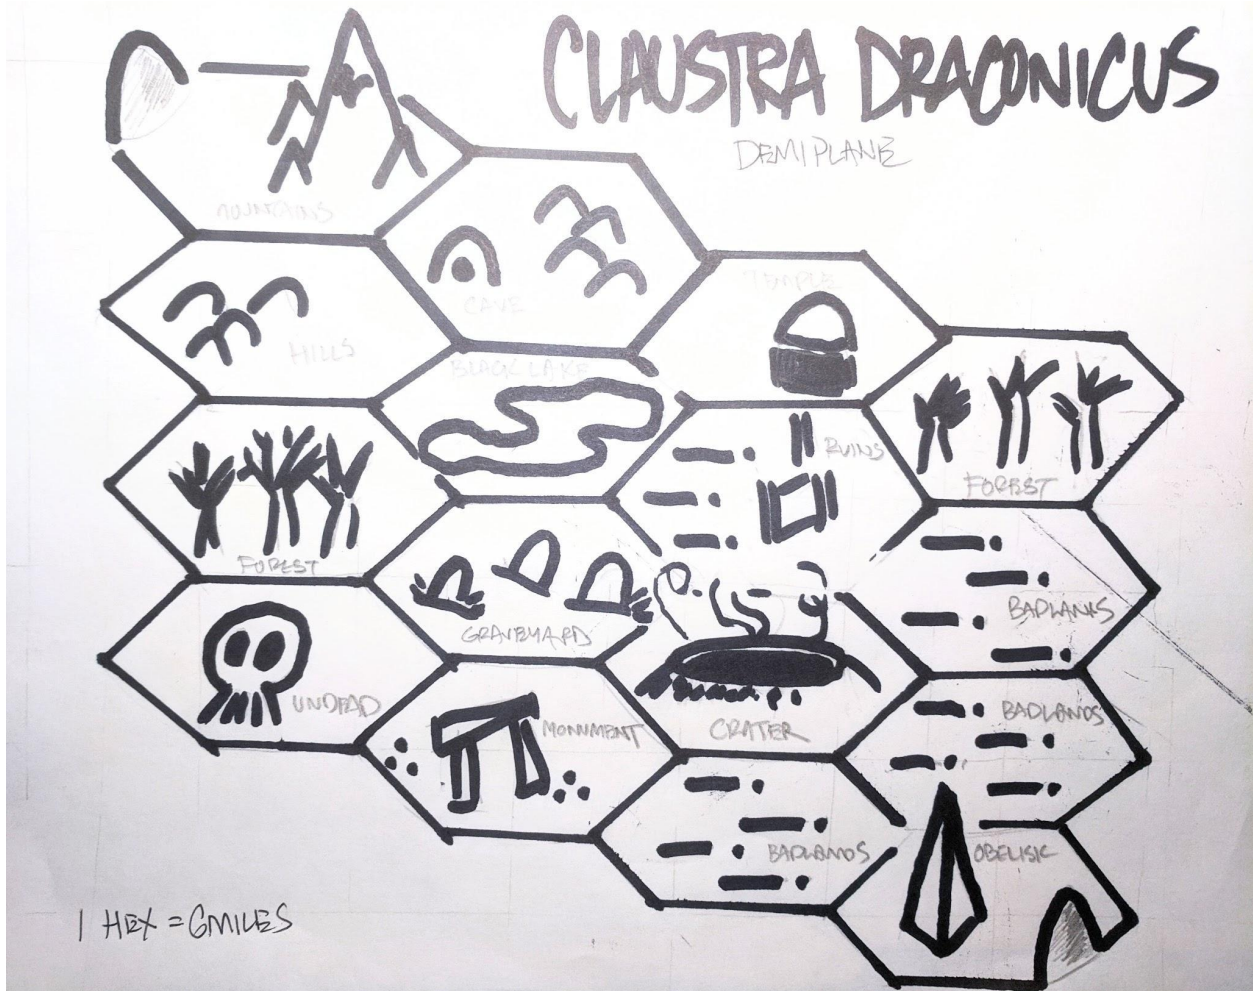 CLAUSTRA DRACONICUS
DEMIPLANE
MOUNTAINS
CAVE
TEMPLE
HILLS
BLACK LAKE
RUINS
FOREST
FOREST
GRAVEYARD
BADLANDS
UNDEAD
MONUMENT
CRATER
BADLANDS
BADLANDS
OBELISK
1 HEX = 6 MILES